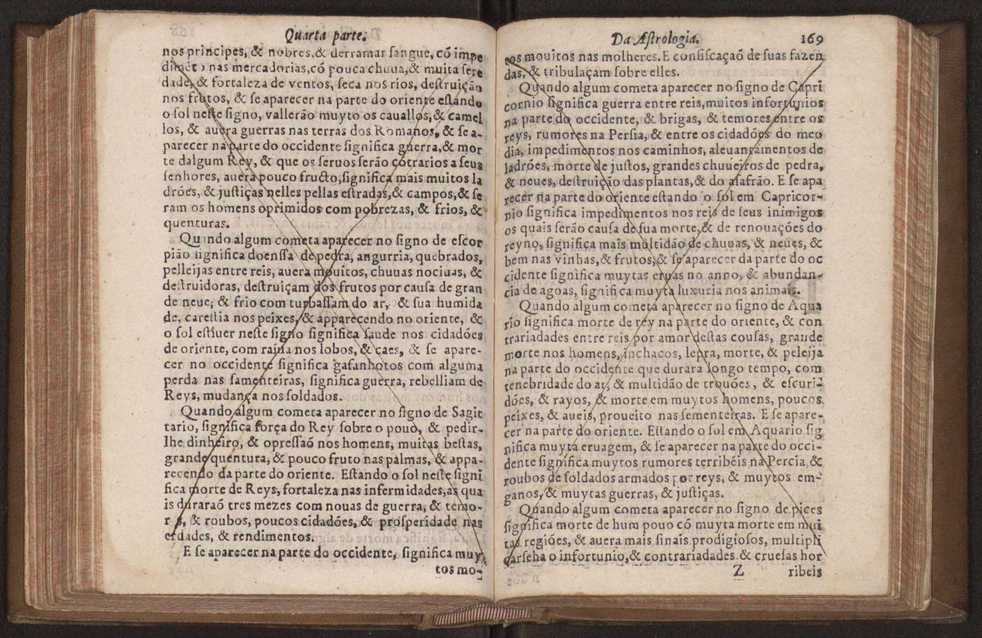 Quarta parte.
nos principes, & nobres,& derramar sangue, có impe
nas mercadorias,có pouca chuua,& muita sere
dade, & fortaleza de ventos, seca nos rios, destruição
nos frutos, & se aparecer na parte do oriente estando
o sol neste signo, vallerão muyto os cauallos,& camel
los, & auera guerras nas terras dos Romanos, & se a-
parecer na parte do occidente significa guerra,& mor
te dalgum Rey, & que os seruos serão cótrarios a seus
senhores, auera pouco fructo,significa mais muitos la
drões, & justiças nelles pellas estradas,& campos,& se
ram os homens oprimidos com pobrezas, & frios, &
quenturas.
Quando algum cometa aparecer no signo de escor
pião significa doenssa de pedra, angurria, quebrados,
pelleijas entre reis, auera mouitos, chuuas nociuas, &
destruidoras, destruiçam dos frutos por causa de gran
de neue, & frio com turbassam do ar, & sua humida
de, carestia nos peixes, & apparecendo no oriente, &
o sol estiuer neste signo significa saude nos cidadóes
de oriente, com raiua nos lobos, & caes, & se apare-
cer no occidente significa gafanhotos com alguma
perda nas samenteiras, significa guerra, rebelliam de
Reys, mudança nos soldados.
Quando algum cometa aparecer no signo de Sagit
tario, significa força do Rey sobre o pouo, & pedir-
lhe dinheiro, & opressaõ nos homens, muitas bestas,
grande quentura, & pouco fruto nas palmas, & appa-
recendo da parte do oriente. Estando o sol neste signi
fica morte de Reys, fortaleza nas infermidades,as qua
is duraraõ tres mezes com nouas de guerra, & temo-
& roubos, poucos cidadóes, & prosperidade nas
erdades, & rendimentos.
E se aparecer na parte do occidente, significa muy
tos mo-
Da Astrologia. 169
tos mouitos nas molheres. E confiscaçaõ de suas fazen
das, & tribulaçam sobre elles.
Quando algum cometa aparecer no signo de Capri
cornio significa guerra entre reis,muitos infortunios
na parte do occidente, & brigas, & temores entre os
reys, rumores na Persia, & entre os cidadóes do meo
dia, impedimentos nos caminhos, aleuantamentos de
ladróes, morte de justos, grandes chuueiros de pedra,
& neues, destruição das plantas,& do assafrão. E se apa
recer na parte do oriente estando o sol em Capricor-
nio significa impedimentos nos reis de seus inimigos
os quais serão causa de sua morte,& de renouações do
reyno, significa mais multidão de chuuas, & neues, &
bem nas vinhas,& frutos,& se aparecer da parte do oc
cidente significa muytas eruas no anno, & abundan-
cia de agoas, significa muyta luxuria nos animais.
Quando algum cometa aparecer no signo de Aqua
rio significa morte de rey na parte do oriente, & con
trariadades entre reis por amor destas cousas, grande
morte nos homens, inchacos, lepra, morte, & peleija
na parte do occidente que durara longo tempo, com
tenebridade do ar, & multidão de trouóes, & escuri-
dóes, & rayos, & morte em muytos homens, poucos
peixes, & aueis, proueito nas sementeiras. E se apare-
cer na parte do oriente. Estando o sol em Aquario sig
nifica muyta eruagem, & se aparecer na parte do occi-
dente significa muytos rumores terribéis na Percia,&
roubos de soldados armados por reys, & muytos em-
ganos, & muytas guerras, & justiças.
Quando algum cometa aparecer no signo de pices
significa morte de hum pouo có muyta morte em mui
tas regióes, & auera mais sinais prodigiosos, multipli
carseha o infortunio,& contrariadades & cruesas hor
Z ribeis